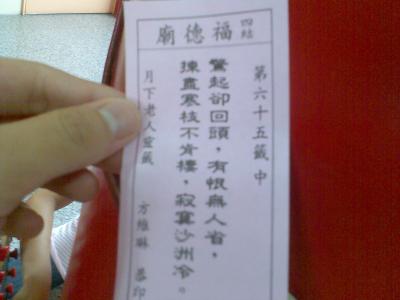 四結福德廟
第六十五籤中
驚起卻回頭,有恨無人省,
揀盡寒枝不肯棲,寂寞沙洲冷。
月下老人靈籤
方維琳 恭印